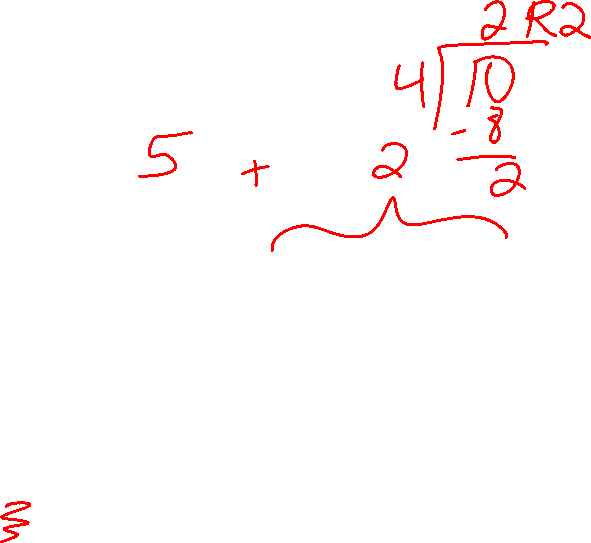 2 R2
4 10
- 8
5 + 2 2